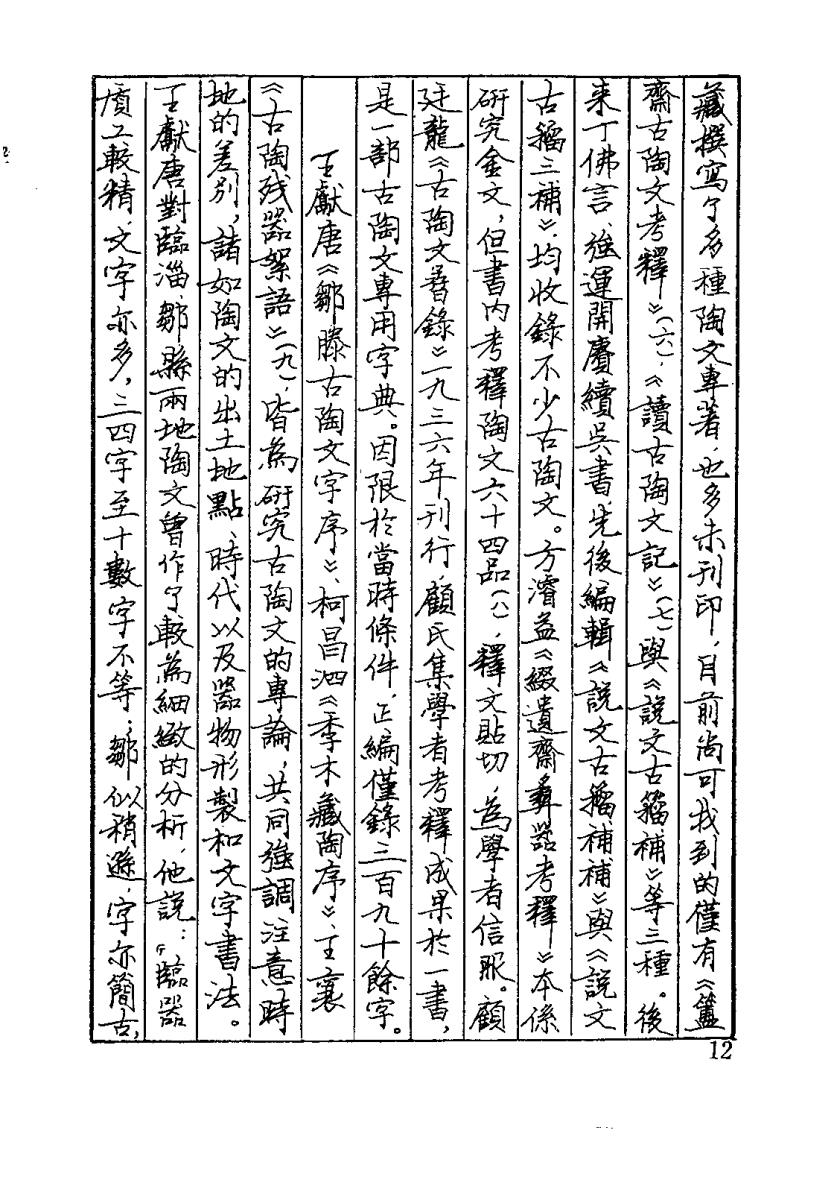 藏撰寫了多種陶文專著，也多未刊印，目前尚可找到的僅有《簠
齋古陶文考釋》（六）、《讀古陶文記》（七）與《說文古籀補》等三種。後
來丁佛言、強運開賡續吳書，先後編輯《說文古籀補補》與《說文
古籀三補》，均收錄不少古陶文。方濬益《綴遺齋彝器考釋》本係
研究金文，但書内考釋陶文六十四品（八），釋文貼切，為學者信服。顧
廷龍《古陶文孴錄》一九三六年刊行，顧氏集學者考釋成果於一書，
是一部古陶文專用字典。因限於當時條件，正編僅錄三百九十餘字。
王獻唐《鄒滕古陶文字序》、柯昌泗《季木藏陶序》、王襄
《古陶残器絮語》（九），皆為研究古陶文的專論，共同強調注意時
地的差別，諸如陶文的出土地點、時代以及器物形製和文字書法。
王獻唐對臨淄、鄒縣兩地陶文曾作了較為細緻的分析，他說：「臨器
質工較精，文字亦多，三四字至十數字不等；鄒似稍遜，字亦簡古，
12